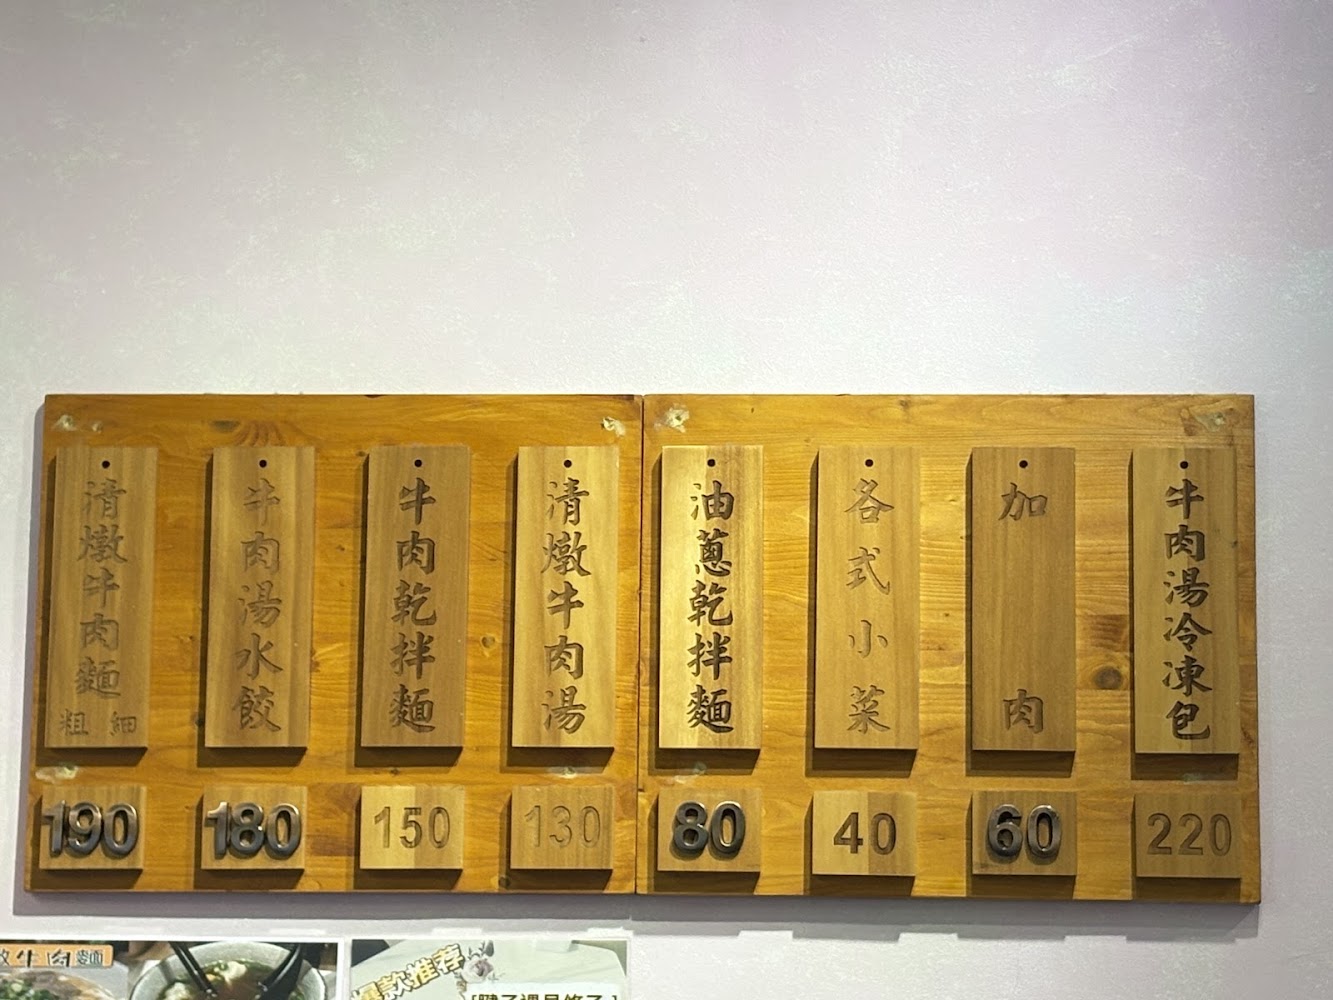 清燉牛肉麵
粗 細
190
牛肉湯水餃
180
牛肉乾拌麵
150
清燉牛肉湯
130
油蔥乾拌麵
80
各式小菜
40
加肉
60
牛肉湯冷凍包
220
牛肉麵
款推荐